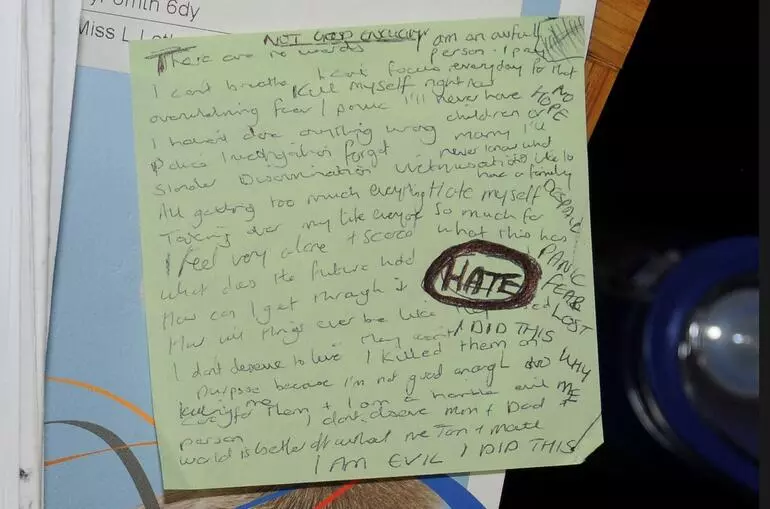 Smith 6dy
Miss L
NOT GOOD ENOUGH
There are no words
I can't breathe
I can't focus
Kill myself right now
overwhelming fear / panic
I haven't done anything wrong
Police investigation forget
Slander Discrimination Victimisation
All getting too much everything
Taking over my life everyone
I feel very alone + scared
what does the future hold
How can I get through it
How will things ever be like
I don't deserve to live
I killed them on
purpose because I'm not good enough
care for them + I am a horrible evil
person
I don't deserve Mum + Dad
world is better off without me
I AM EVIL I DID THIS
am an awful
person. I pay
everyday for that
I'll never have
children or
marry I'll
never know what
like to
have a family
Hate myself
so much for
what this has
HATE
I DID THIS
They won't
killing me
NO
HOPE
DESPAIR
PANIC
FEAR
LOST
WHY
ME